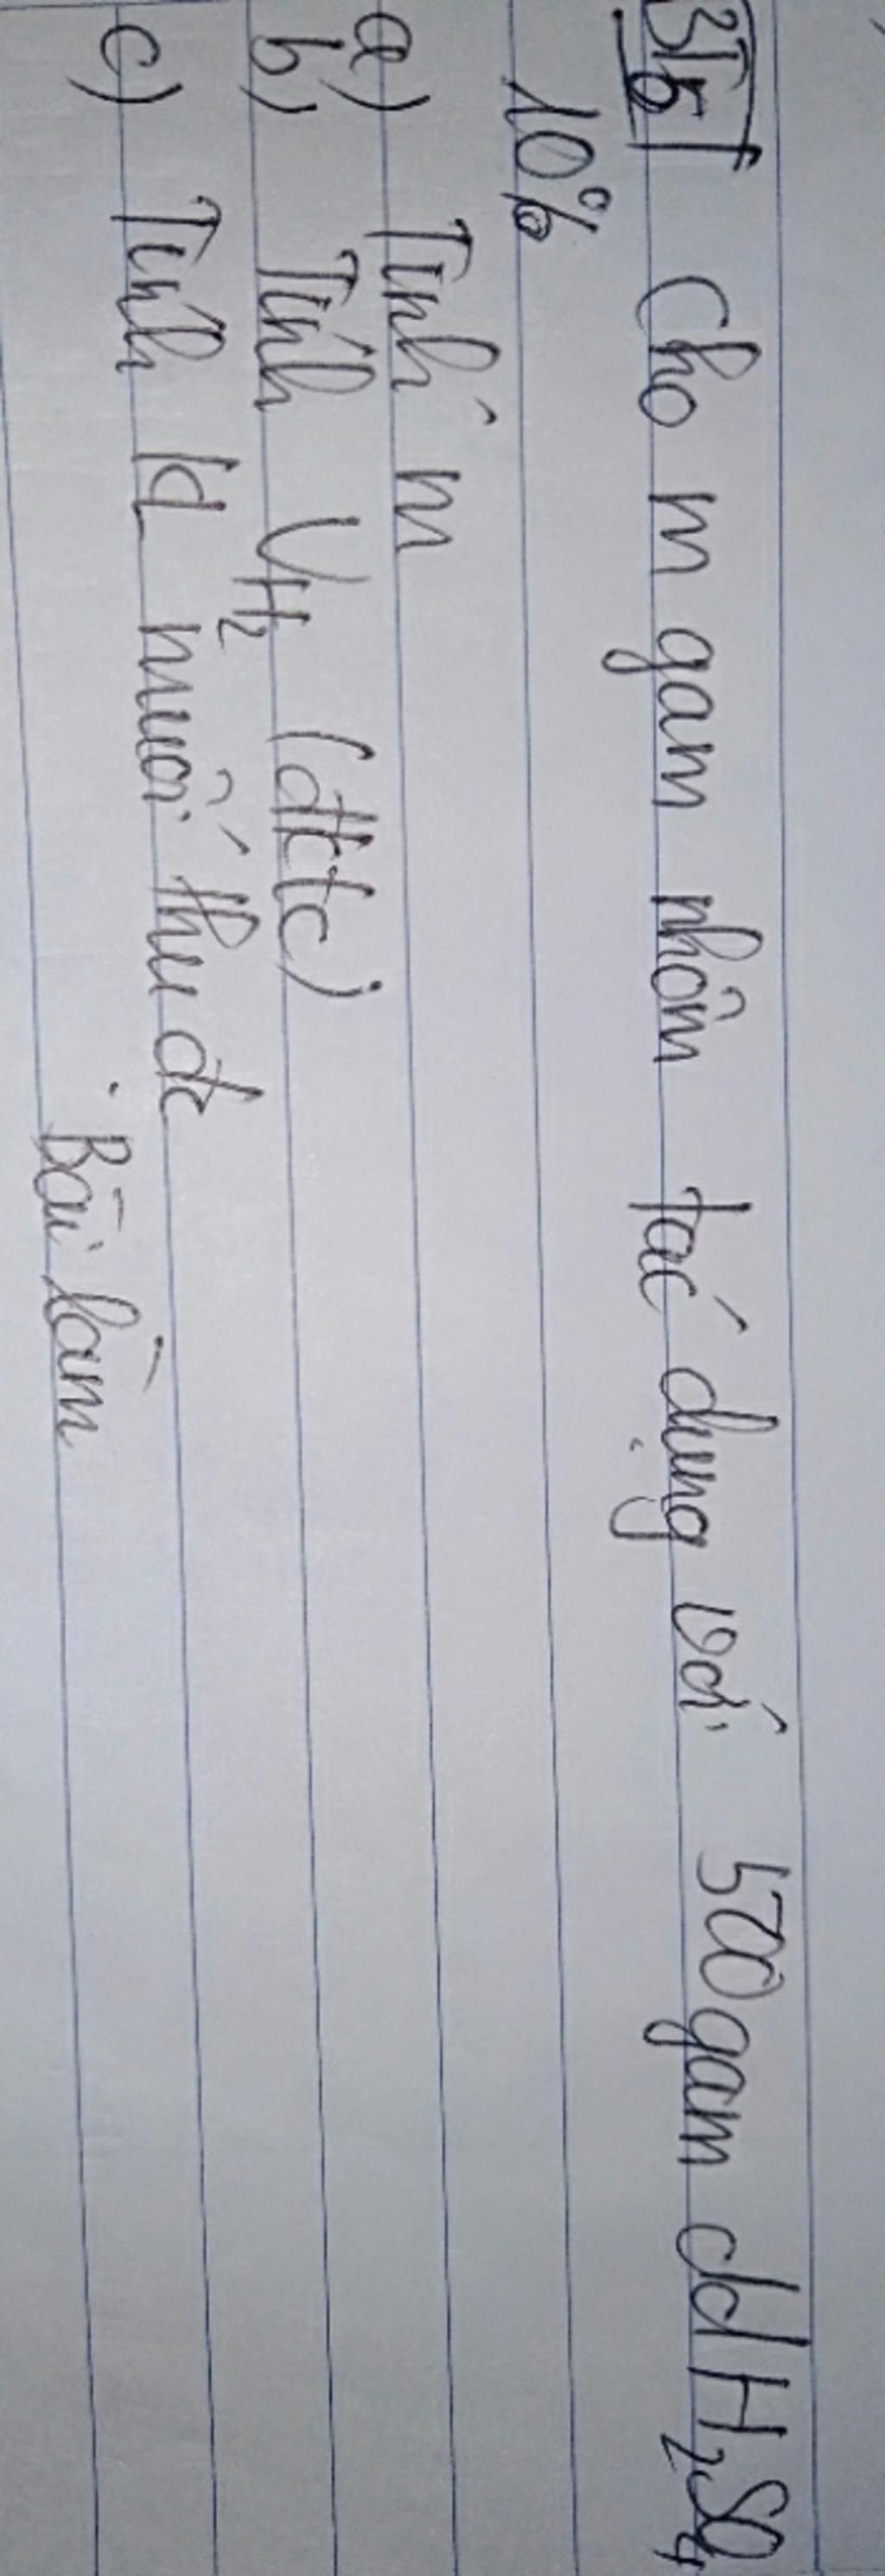 BT5 Cho m gam nhôm tác dụng với 500gam ddH₂SO₄
10%
a) Tính m
b) Tính VH₂ (đktc)
c) Tính kl muối thu đc
Bài làm